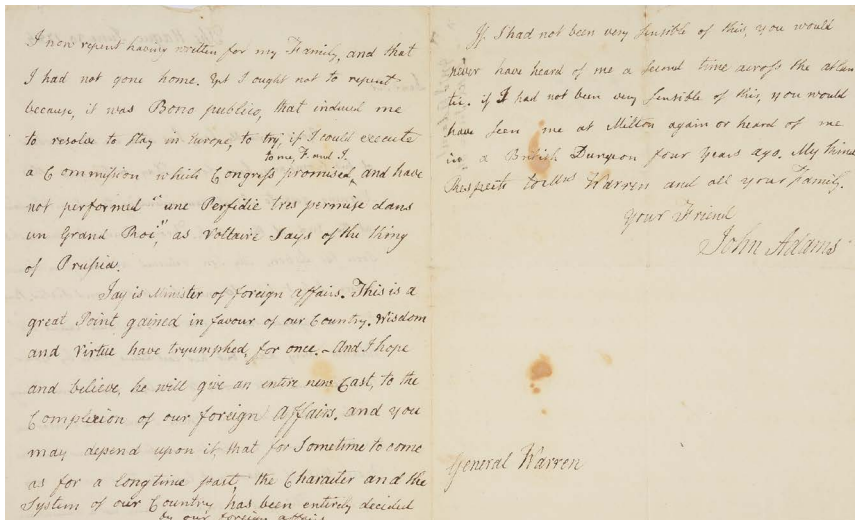 I now repent having written for my Family, and that
I had not gone home. Yet I ought not to repent
because, it was Bono publico, that induced me
to resolve to stay in Europe, to try, if I could execute
to me, F. and J.
a Commission which Congress promised, and have
not performed "une Perfidie tres permise dans
un Grand Roi", as Voltaire Says of the King
of Prussia.
Jay is Minister of foreign affairs. This is a
great Point gained in favour of our Country. Wisdom
and Virtue have tryumphed, for once. And I hope
and believe, he will give an entire new Cast, to the
Complexion of our foreign Affairs. and you
may depend upon it, that for Sometime to come
as for a longtime past, the Character and the
System of our Country has been entirely decided
by our foreign affairs
If I had not been very Sensible of this, you would
never have heard of me a Second time across the atlan
tic. if I had not been very Sensible of this, you would
have Seen me at Milton again or heard of me
in a British Dungeon four Years ago. My
Respects to Mrs Warren and all your Family.
Your Friend
John Adams
General Warren